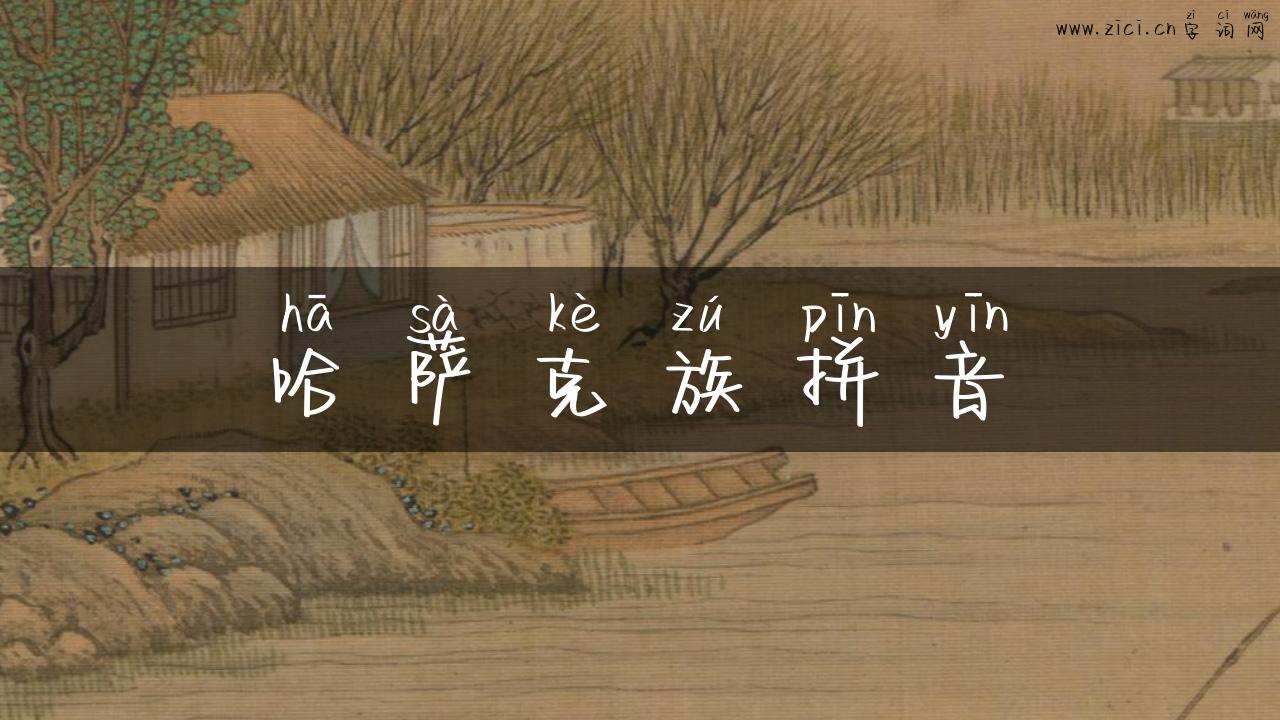 zì cí wǎng
www.zici.cn 字词网
hā sà kè zú pīn yīn
哈萨克族拼音